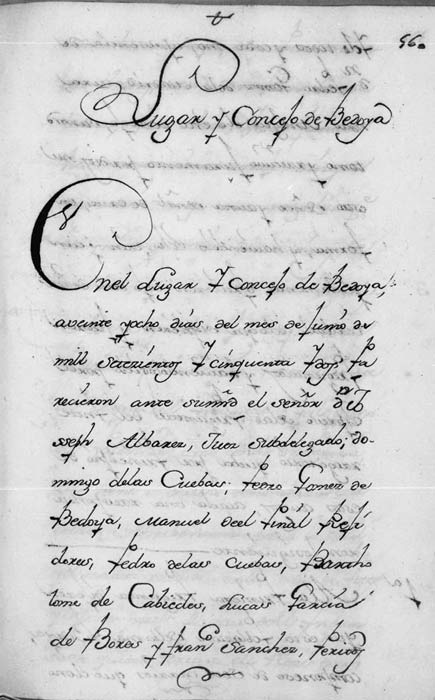 56.
Lugar y Concejo de Bedoya
En el Lugar y Concejo de Bedoya,
aveinte yocho dias del mes de Junio de
mill Setezientos y cinquenta y dos pa
recieron ante sumrd el señor Dn Jo
sseph Albarez, Juez Subdelegado, do
mingo delas Cuebas, Pedro Gomez de
Bedoya, Manuel deel Pinál Reji
dores, Pedro delas Cuebas, Bartho
lome de Cabiedes, Lucas Garcia
de Boxas y Franco Sanchez, Peritos